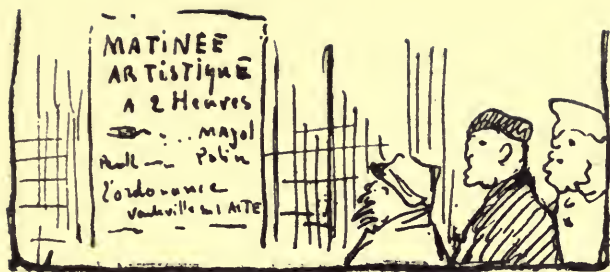 MATINÉE
ARTISTIQUE
A 2 Heures
... MAyol
Polin
l'ordonnance
Vaudeville en 1 ACTE